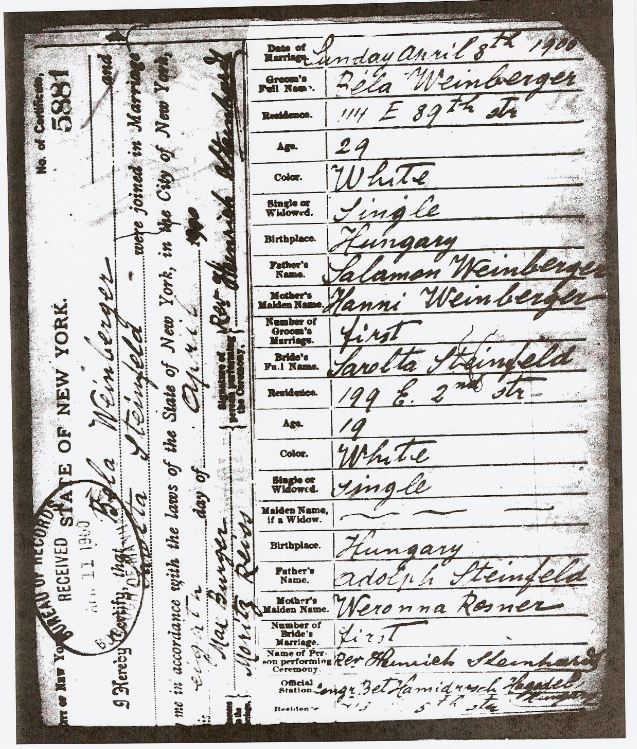 No. of Certificate,
5881
STATE OF NEW YORK.
BUREAU OF RECORDS
RECEIVED
11 1900
I Hereby Certify, that Bela Weinberger and
Sarolta Steinfeld were joined in Marriage
me in accordance with the laws of the State of New York, in the City of New York,
eighth day of April 1900
Signature of person performing the Ceremony. Rev Heinrich Steinhardt
Max Burger
Moritz Reiss
Date of Marriage. Sunday April 8th 1900
Groom's Full Name. Béla Weinberger
Residence. 114 E 89th str
Age. 29
Color. White
Single or Widowed. Single
Birthplace. Hungary
Father's Name. Salamon Weinberger
Mother's Maiden Name. Hanni Weinberger
Number of Groom's Marriage. first
Bride's Full Name. Sarolta Steinfeld
Residence. 199 E. 2nd str
Age. 19
Color. White
Single or Widowed. Single
Maiden Name, if a Widow.
Birthplace. Hungary
Father's Name. Adolph Steinfeld
Mother's Maiden Name. Weronna Rosner
Number of Bride's Marriage. first
Name of Person performing Ceremony. Rev Heinrich Steinhardt
Official Station. Congr. Bet Hamidrasch
Residence 5th str